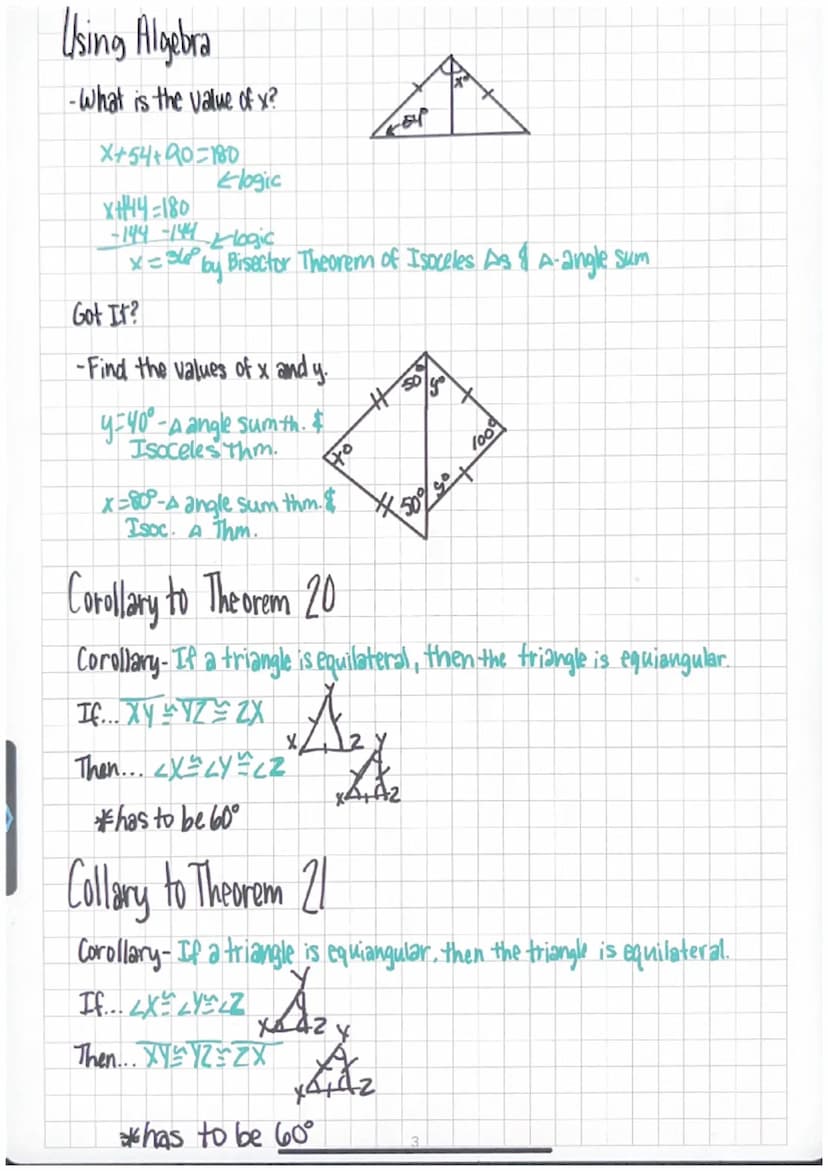 Using Algebra
-What is the value of x?
x°
54°
x+54+90=180
←logic
x+144=180
-144 -144 ←logic
x=36° by Bisector Theorem of Isoceles △s & △-angle sum
Got It?
-Find the values of x and y.
50° y°
y=40°-△ angle sum th. &
Isoceles Thm.
100°
x°
y°
50°
x=80°-△ angle sum thm. &
Isoc. △ Thm.
Corollary to Theorem 20
Corollary-If a triangle is equilateral, then the triangle is equiangular.
If... XY≅YZ≅ZX
Y
X Z
Then... ∠X≅∠Y≅∠Z
Y
X Z
*has to be 60°
Collary to Theorem 21
Corollary-If a triangle is equiangular, then the triangle is equilateral.
If... ∠X≅∠Y≅∠Z
Y
X Z
Then... XY≅YZ≅ZX
Y
X Z
*has to be 60°
3